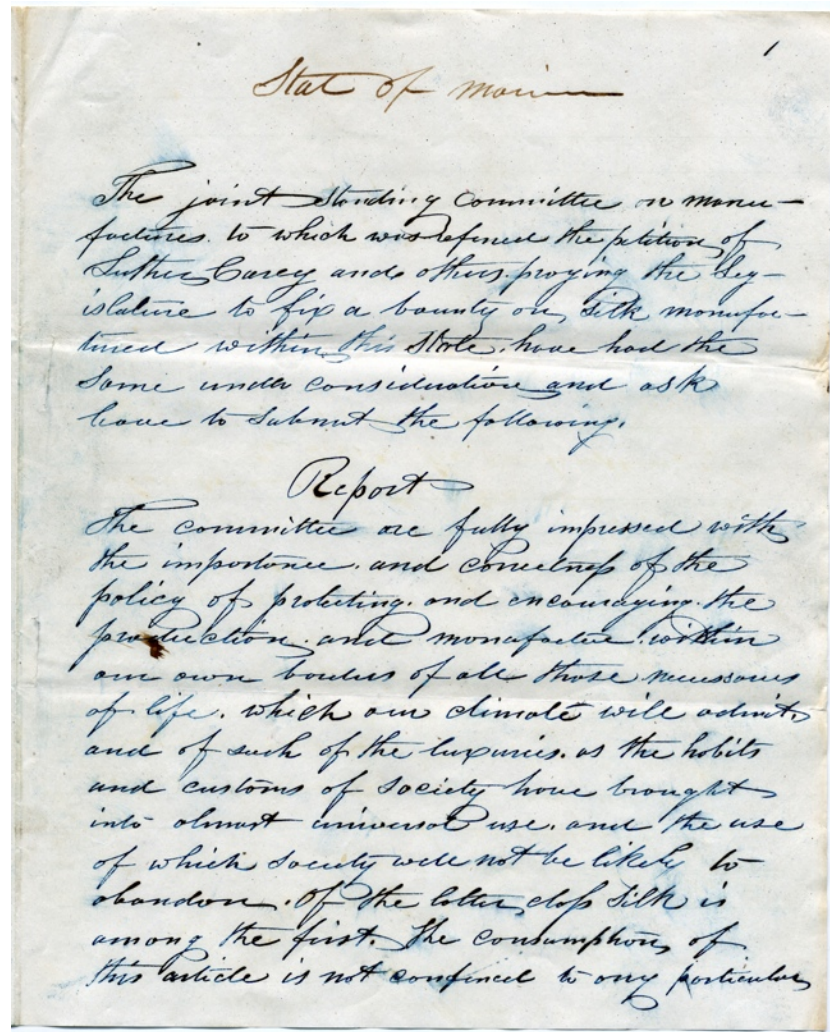 1
Stat of Maine
The joint Standing Committee on manu-
factures. to which was refered the petition of
Luther Carey and others. praying the Leg-
islature to fix a bounty on Silk manufac-
tured within this State. have had the
Same under consideration and ask
leave to Submit the following.
Report
The committee are fully impressed with
the importance. and correctness of the
policy of protecting. and encouraging. the
production. and manufacture. within
our own borders of all those necessaries
of life. which our climate will admit.
and of such of the luxuries. as the habits
and customs of Society have brought
into almost universal use. and the use
of which Society will not be likely to
abandon. Of the latter class Silk is
among the first. The consumption of
this article is not confined to any particular